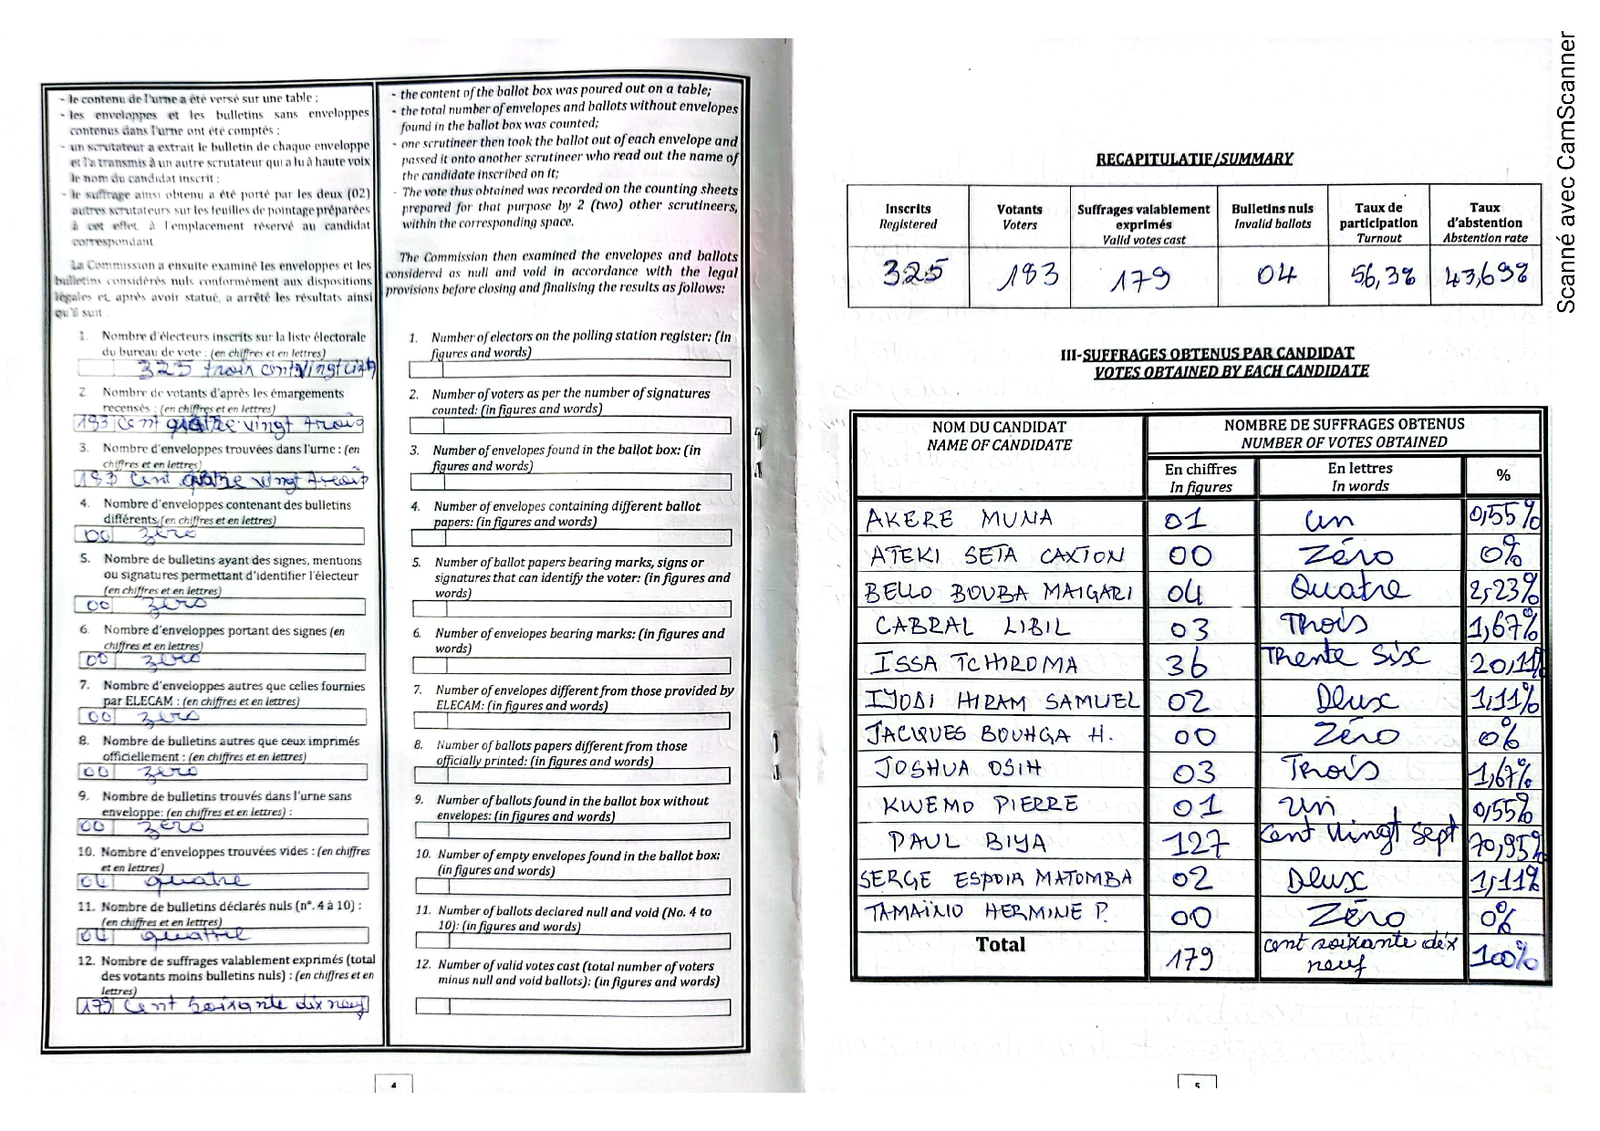 - le contenu de l'urne a été versé sur une table ;
- les enveloppes et les bulletins sans enveloppes
contenus dans l'urne ont été comptés ;
- un scrutateur a extrait le bulletin de chaque enveloppe
et l'a transmis à un autre scrutateur qui a lu à haute voix
le nom du candidat inscrit ;
- le suffrage ainsi obtenu a été porté par les deux (02)
autres scrutateurs sur les feuilles de pointage préparées
à cet effet à l'emplacement réservé au candidat
correspondant
La Commission a ensuite examiné les enveloppes et les
bulletins considérés nuls conformément aux dispositions
légales et, après avoir statué, a arrêté les résultats ainsi
qu'il suit :
1. Nombre d'électeurs inscrits sur la liste électorale
du bureau de vote : (en chiffres et en lettres)
325 trois cent vingt cinq
2. Nombre de votants d'après les émargements
recensés : (en chiffres et en lettres)
183 Cent quatre vingt trois
3. Nombre d'enveloppes trouvées dans l'urne : (en
chiffres et en lettres)
183 Cent quatre vingt trois
4. Nombre d'enveloppes contenant des bulletins
différents (en chiffres et en lettres)
00 zero
5. Nombre de bulletins ayant des signes, mentions
ou signatures permettant d'identifier l'électeur
(en chiffres et en lettres)
00 zero
6. Nombre d'enveloppes portant des signes (en
chiffres et en lettres)
00 zero
7. Nombre d'enveloppes autres que celles fournies
par ELECAM : (en chiffres et en lettres)
00 zero
8. Nombre de bulletins autres que ceux imprimés
officiellement : (en chiffres et en lettres)
00 zero
9. Nombre de bulletins trouvés dans l'urne sans
enveloppe: (en chiffres et en lettres) :
00 zero
10. Nombre d'enveloppes trouvées vides : (en chiffres
et en lettres)
04 quatre
11. Nombre de bulletins déclarés nuls (n°. 4 à 10) :
(en chiffres et en lettres)
04 quatre
12. Nombre de suffrages valablement exprimés (total
des votants moins bulletins nuls) : (en chiffres et en
lettres)
179 Cent soixante dix neuf
- the content of the ballot box was poured out on a table;
- the total number of envelopes and ballots without envelopes
found in the ballot box was counted;
- one scrutineer then took the ballot out of each envelope and
passed it onto another scrutineer who read out the name of
the candidate inscribed on it;
- The vote thus obtained was recorded on the counting sheets
prepared for that purpose by 2 (two) other scrutineers,
within the corresponding space.
The Commission then examined the envelopes and ballots
considered as null and void in accordance with the legal
provisions before closing and finalising the results as follows:
1. Number of electors on the polling station register: (in
figures and words)
2. Number of voters as per the number of signatures
counted: (in figures and words)
3. Number of envelopes found in the ballot box: (in
figures and words)
4. Number of envelopes containing different ballot
papers: (in figures and words)
5. Number of ballot papers bearing marks, signs or
signatures that can identify the voter: (in figures and
words)
6. Number of envelopes bearing marks: (in figures and
words)
7. Number of envelopes different from those provided by
ELECAM: (in figures and words)
8. Number of ballots papers different from those
officially printed: (in figures and words)
9. Number of ballots found in the ballot box without
envelopes: (in figures and words)
10. Number of empty envelopes found in the ballot box:
(in figures and words)
11. Number of ballots declared null and void (No. 4 to
10): (in figures and words)
12. Number of valid votes cast (total number of voters
minus null and void ballots): (in figures and words)
4
RECAPITULATIF/SUMMARY
Inscrits Registered Votants Voters Suffrages valablement exprimés Valid votes cast Bulletins nuls Invalid ballots Taux de participation Turnout Taux d'abstention Abstention rate
325 183 179 04 56,3% 43,69%
III-SUFFRAGES OBTENUS PAR CANDIDAT
VOTES OBTAINED BY EACH CANDIDATE
NOM DU CANDIDAT NOMBRE DE SUFFRAGES OBTENUS
NAME OF CANDIDATE NUMBER OF VOTES OBTAINED
En chiffres En lettres %
In figures In words
AKERE MUNA 01 un 0,55%
ATEKI SETA CAXTON 00 Zéro 0%
BELLO BOUBA MAIGARI 04 Quatre 2,23%
CABRAL LIBIL 03 Trois 1,67%
ISSA TCHIROMA 36 Trente Six 20,11%
IYODI HIRAM SAMUEL 02 Deux 1,11%
JACQUES BOUHGA H. 00 Zéro 0%
JOSHUA OSIH 03 Trois 1,67%
KWEMO PIERRE 01 un 0,55%
PAUL BIYA 127 cent vingt sept 70,95%
SERGE ESPOIR MATOMBA 02 Deux 1,11%
TAMAÏNIO HERMINE P. 00 Zéro 0%
Total 179 cent soixante dix neuf 100%
5
Scanné avec CamScanner